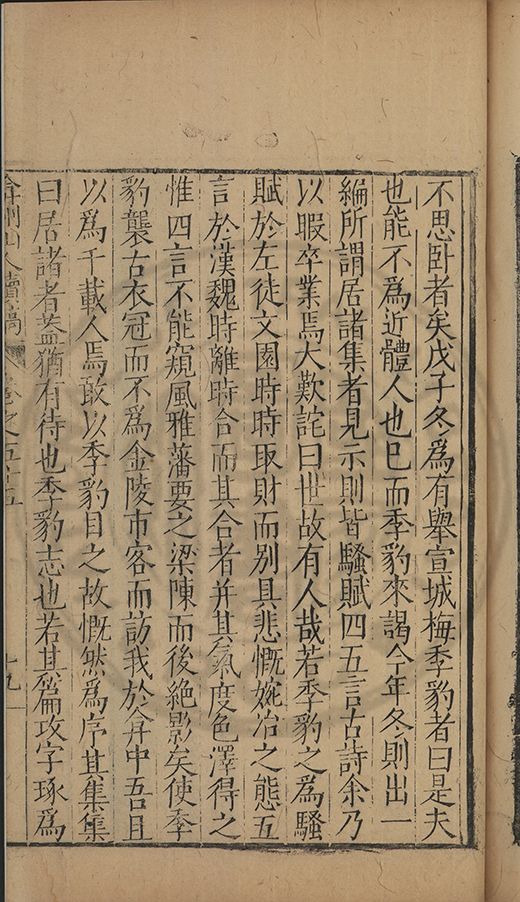 不思臥者矣戊子冬爲有舉宣城梅季豹者曰是夫
也能不爲近體人也已而季豹來謁今年冬則出一
編所謂居諸集者見示則皆騷賦四五言古詩余乃
以暇卒業焉大歎詫曰世故有人哉若季豹之爲騷
賦於左徒文園時時取財而别具悲慨婉冶之態五
言於漢魏時離時合而其合者并其氣度色澤得之
惟四言不能窺風雅藩要之梁陳而後絶影矣使季
豹襲古衣冠而不爲金陵市客而訪我於弇中吾且
以爲千載人焉敢以季豹目之故慨然爲序其集集
曰居諸者葢猶有待也季豹志也若其篇攻字琢爲
弇州山人續稿 卷之五十五 十九